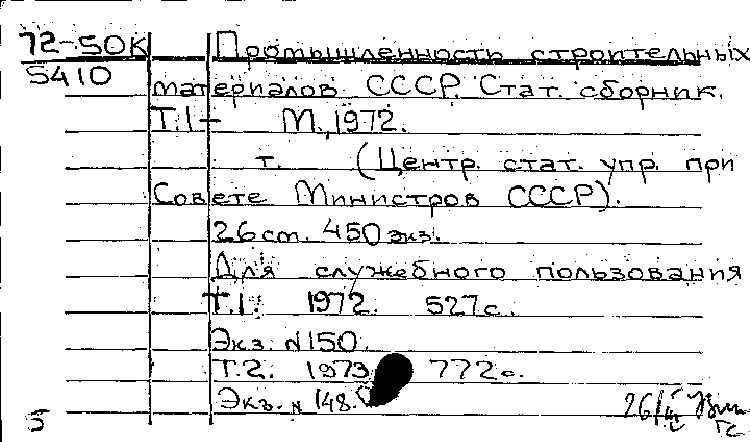 72-50К Промышленность строительных
5410 материалов СССР. Стат. сборник.
Т.1- М., 1972.
т. (Центр. стат. упр. при
Совете Министров СССР).
26 см. 450 экз.
Для служебного пользования
Т.1. 1972. 527 с.
Экз. № 150.
Т.2. 1973 772 с.
Экз. № 148.
5